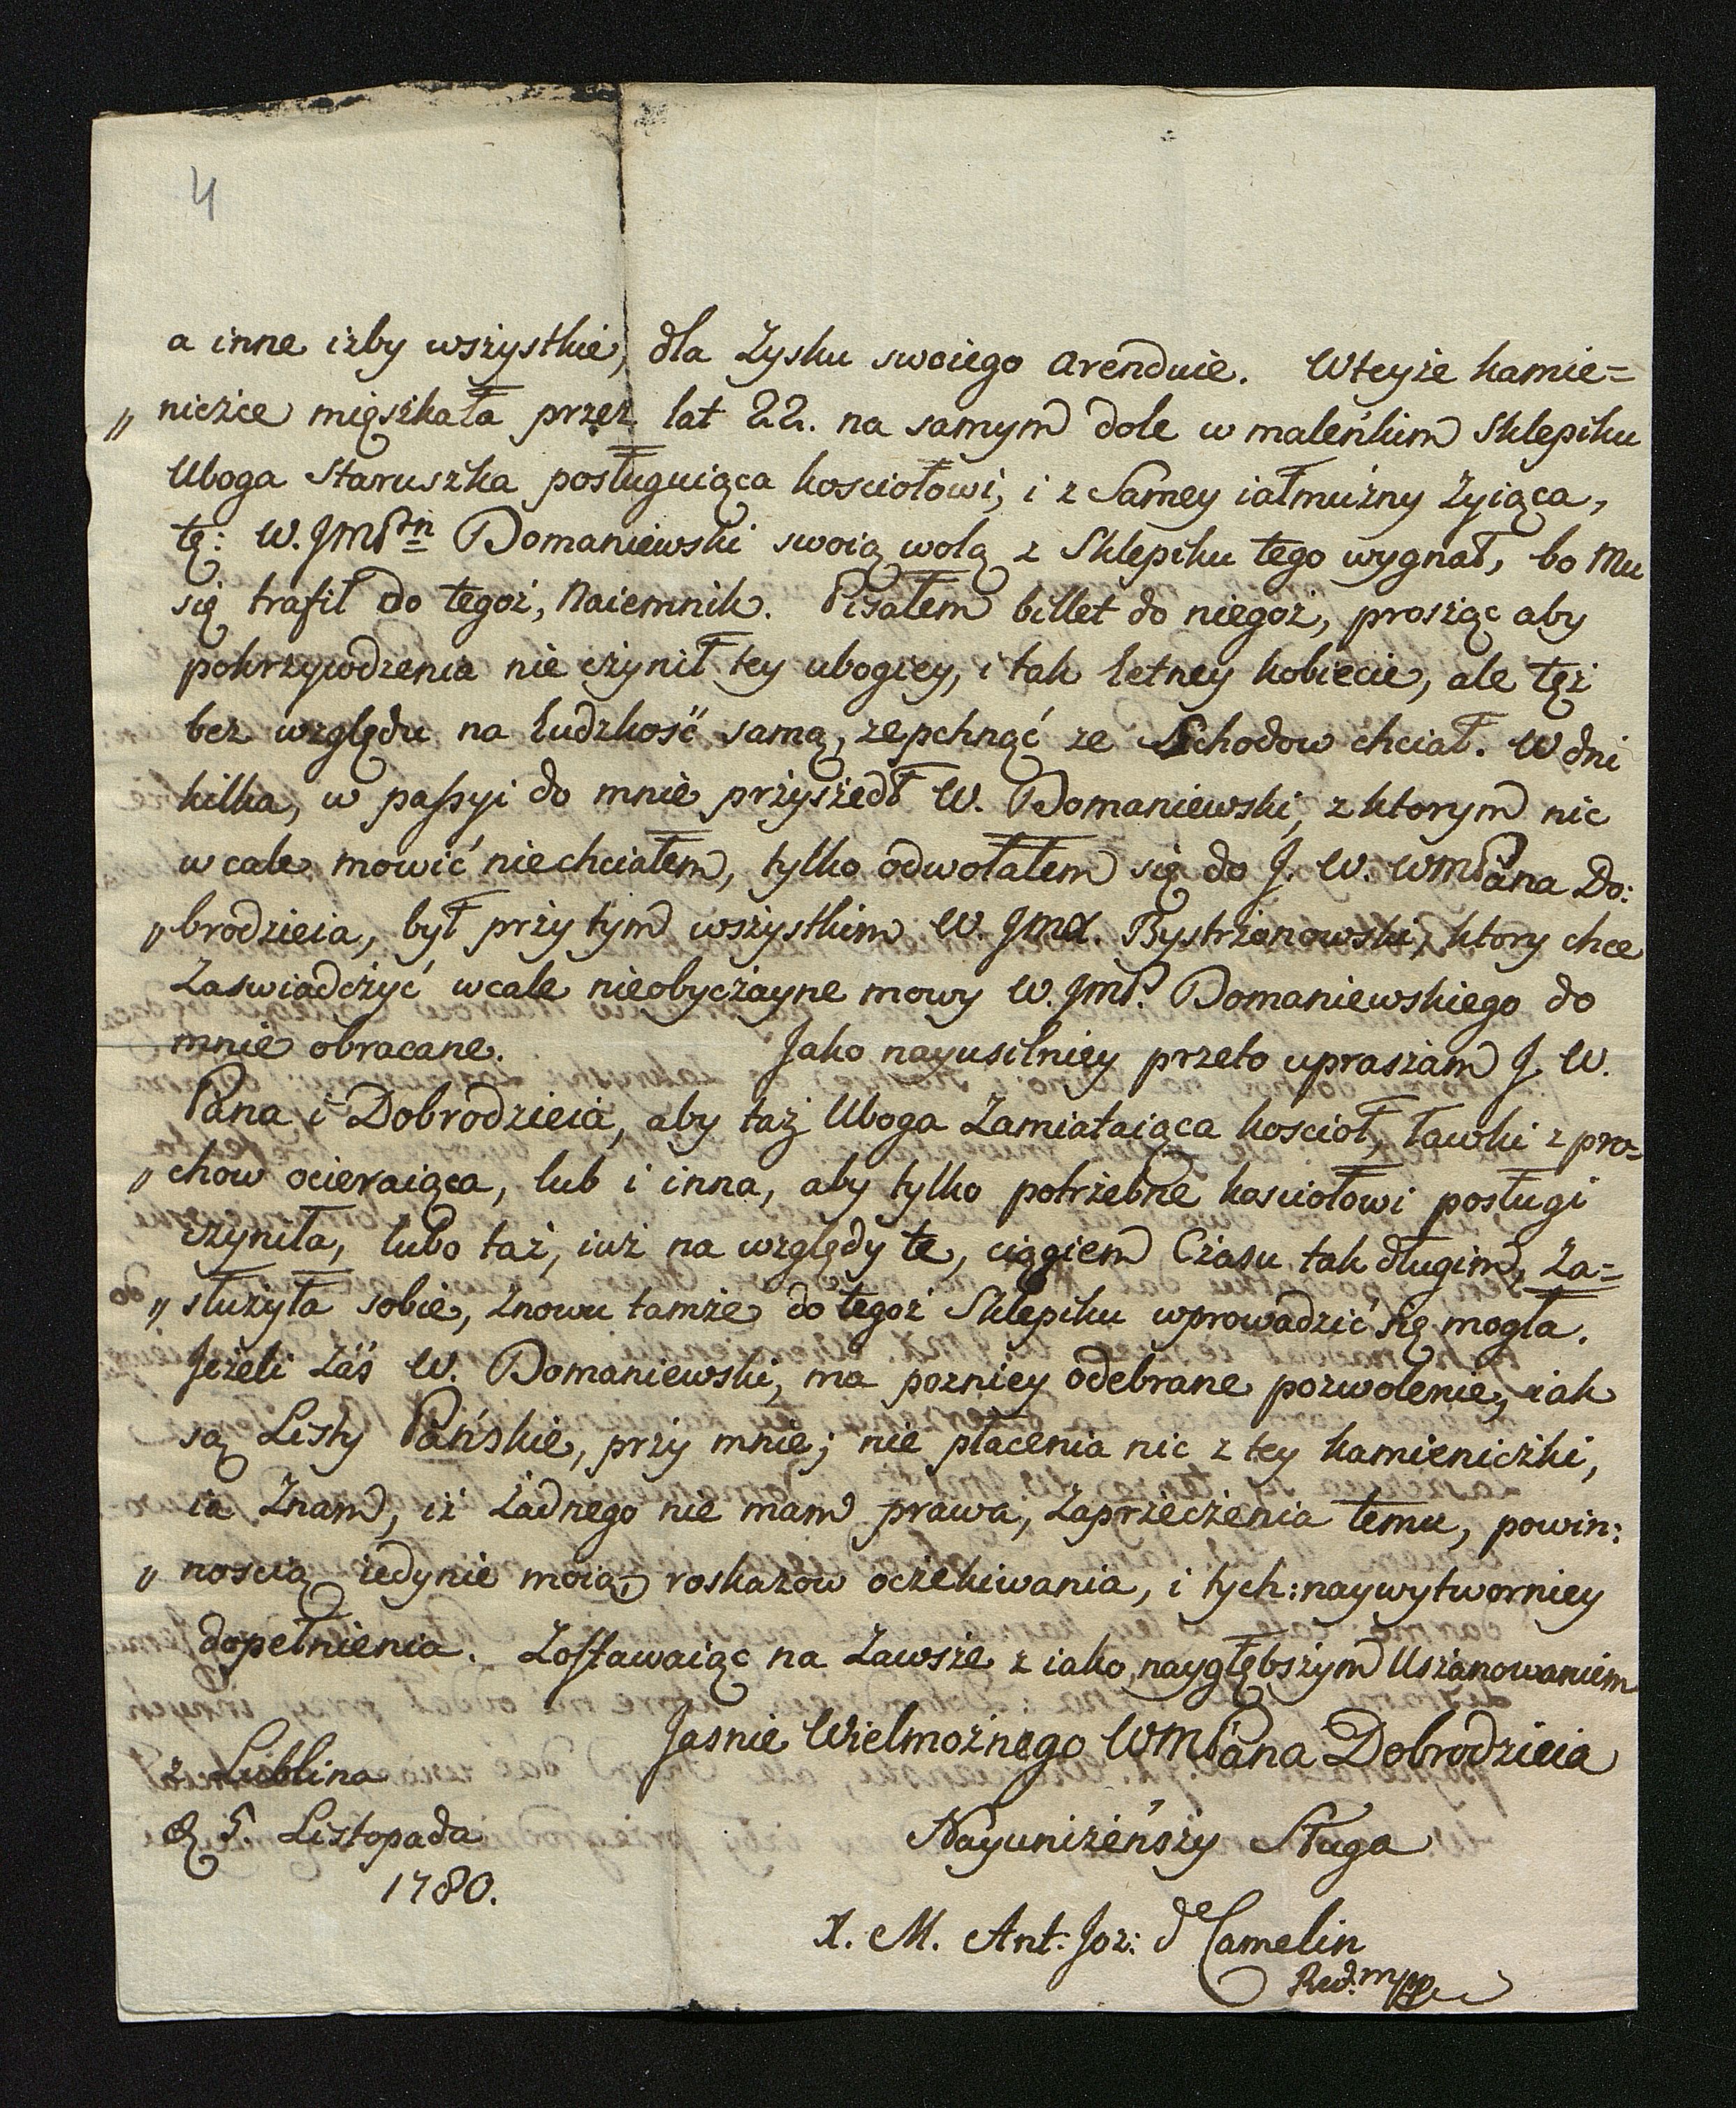 4
a inne izby wszystkie, dla Zysku swoiego arenduie. Wteyże kamie=
„ niczce mięszkała przez lat 22. na samym dole w maleńkim Sklepiku
Uboga Staruszka posługuiąca kosciołowi, i z Samey iałmużny żyiąca,
tę: W. JmPn Domaniewski swoią wolą z Sklepiku tego wygnał, bo Mu
się trafił do tegoż, Naiemnik. Pisałem billet do niegoż, prosząc aby
pokrzywdzenia nie czynił tey ubogiey, i tak letney kobiecie, ale tęż
bez względu na ludzkość samą, zepchnąć ze Schodow chciał. W dni
kilka, w passyi do mnie przyszedł W. Domaniewski, z ktorym nic
wcale mowić niechciałem, tylko odwołałem się do J. W. WMPana Do:
„ brodzieia, był przy tym wszystkim W. JmX. Bystrzanowski, ktory chce
Zaswiadczyć wcale nieobyczayne mowy W. JmP. Domaniewskiego do
mnie obracane. Jako nayusilniey przeto upraszam J. W.
Pana i Dobrodzieia, aby taż Uboga Zamiataiąca koscioł, ławki z pro=
„ chow ocieraiąca, lub i inna, aby tylko potrzebne kosciołowi posługi
czyniła, lubo taż, iuż na względy te, ciągiem Czasu tak długim, Za=
„ służyła sobie, Znowu tamże do tegoż Sklepiku wprowadzić się mogła.
Jeżeli Zaś W. Domaniewski, ma pozniey odebrane pozwolenie, iak
są Listy Pańskie, przy mnie; nie płacenia nic z tey kamieniczki,
ia Znam, iż żadnego nie mam prawa, Zaprzeczenia temu, powin:
„ noscią iedynie moią, roskazow oczekiwania, i tych: naywytworniey
dopełnienia. Zostawaiąc na Zawsze z iako naygłębszym Uszanowaniem
Jasnie Wielmożnego WMPana Dobrodzieia
z Lublina
d. 5. Listopada
1780.
Nayuniżeńszy Sługa
X. M. Ant: Joz: d'Camelin
mpp